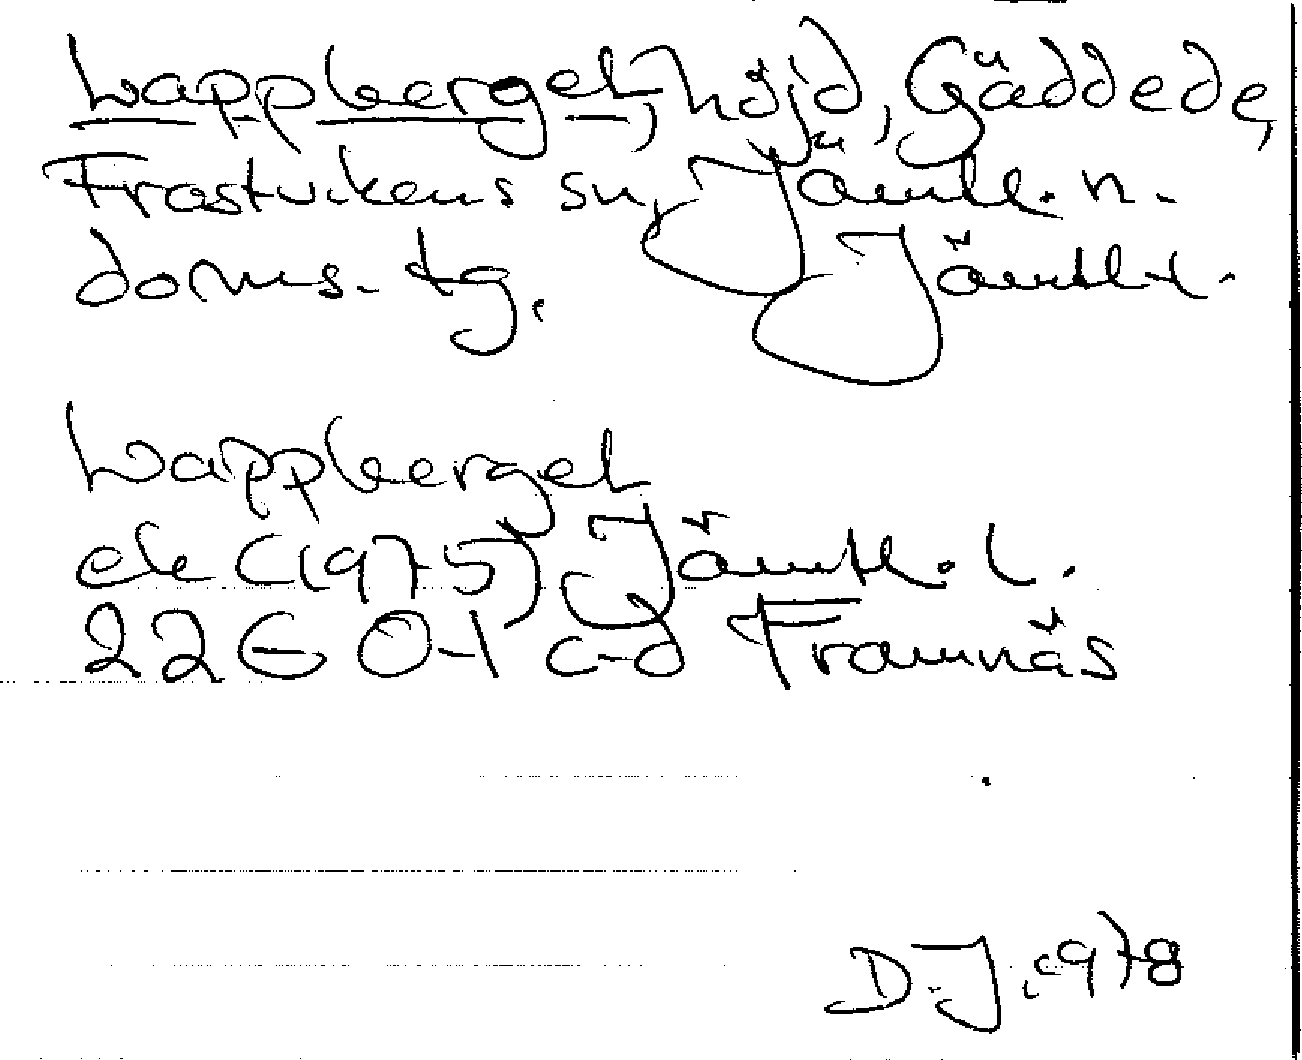 Lappberget, höjd, Gäddede,
Frostvikens sn, Jämtl. n.
doms. tg. Jämtl. l.
Lappberget
ek (1975) Jämtl. l.
22E 0-1 c-d Framnäs
D. J. 1978